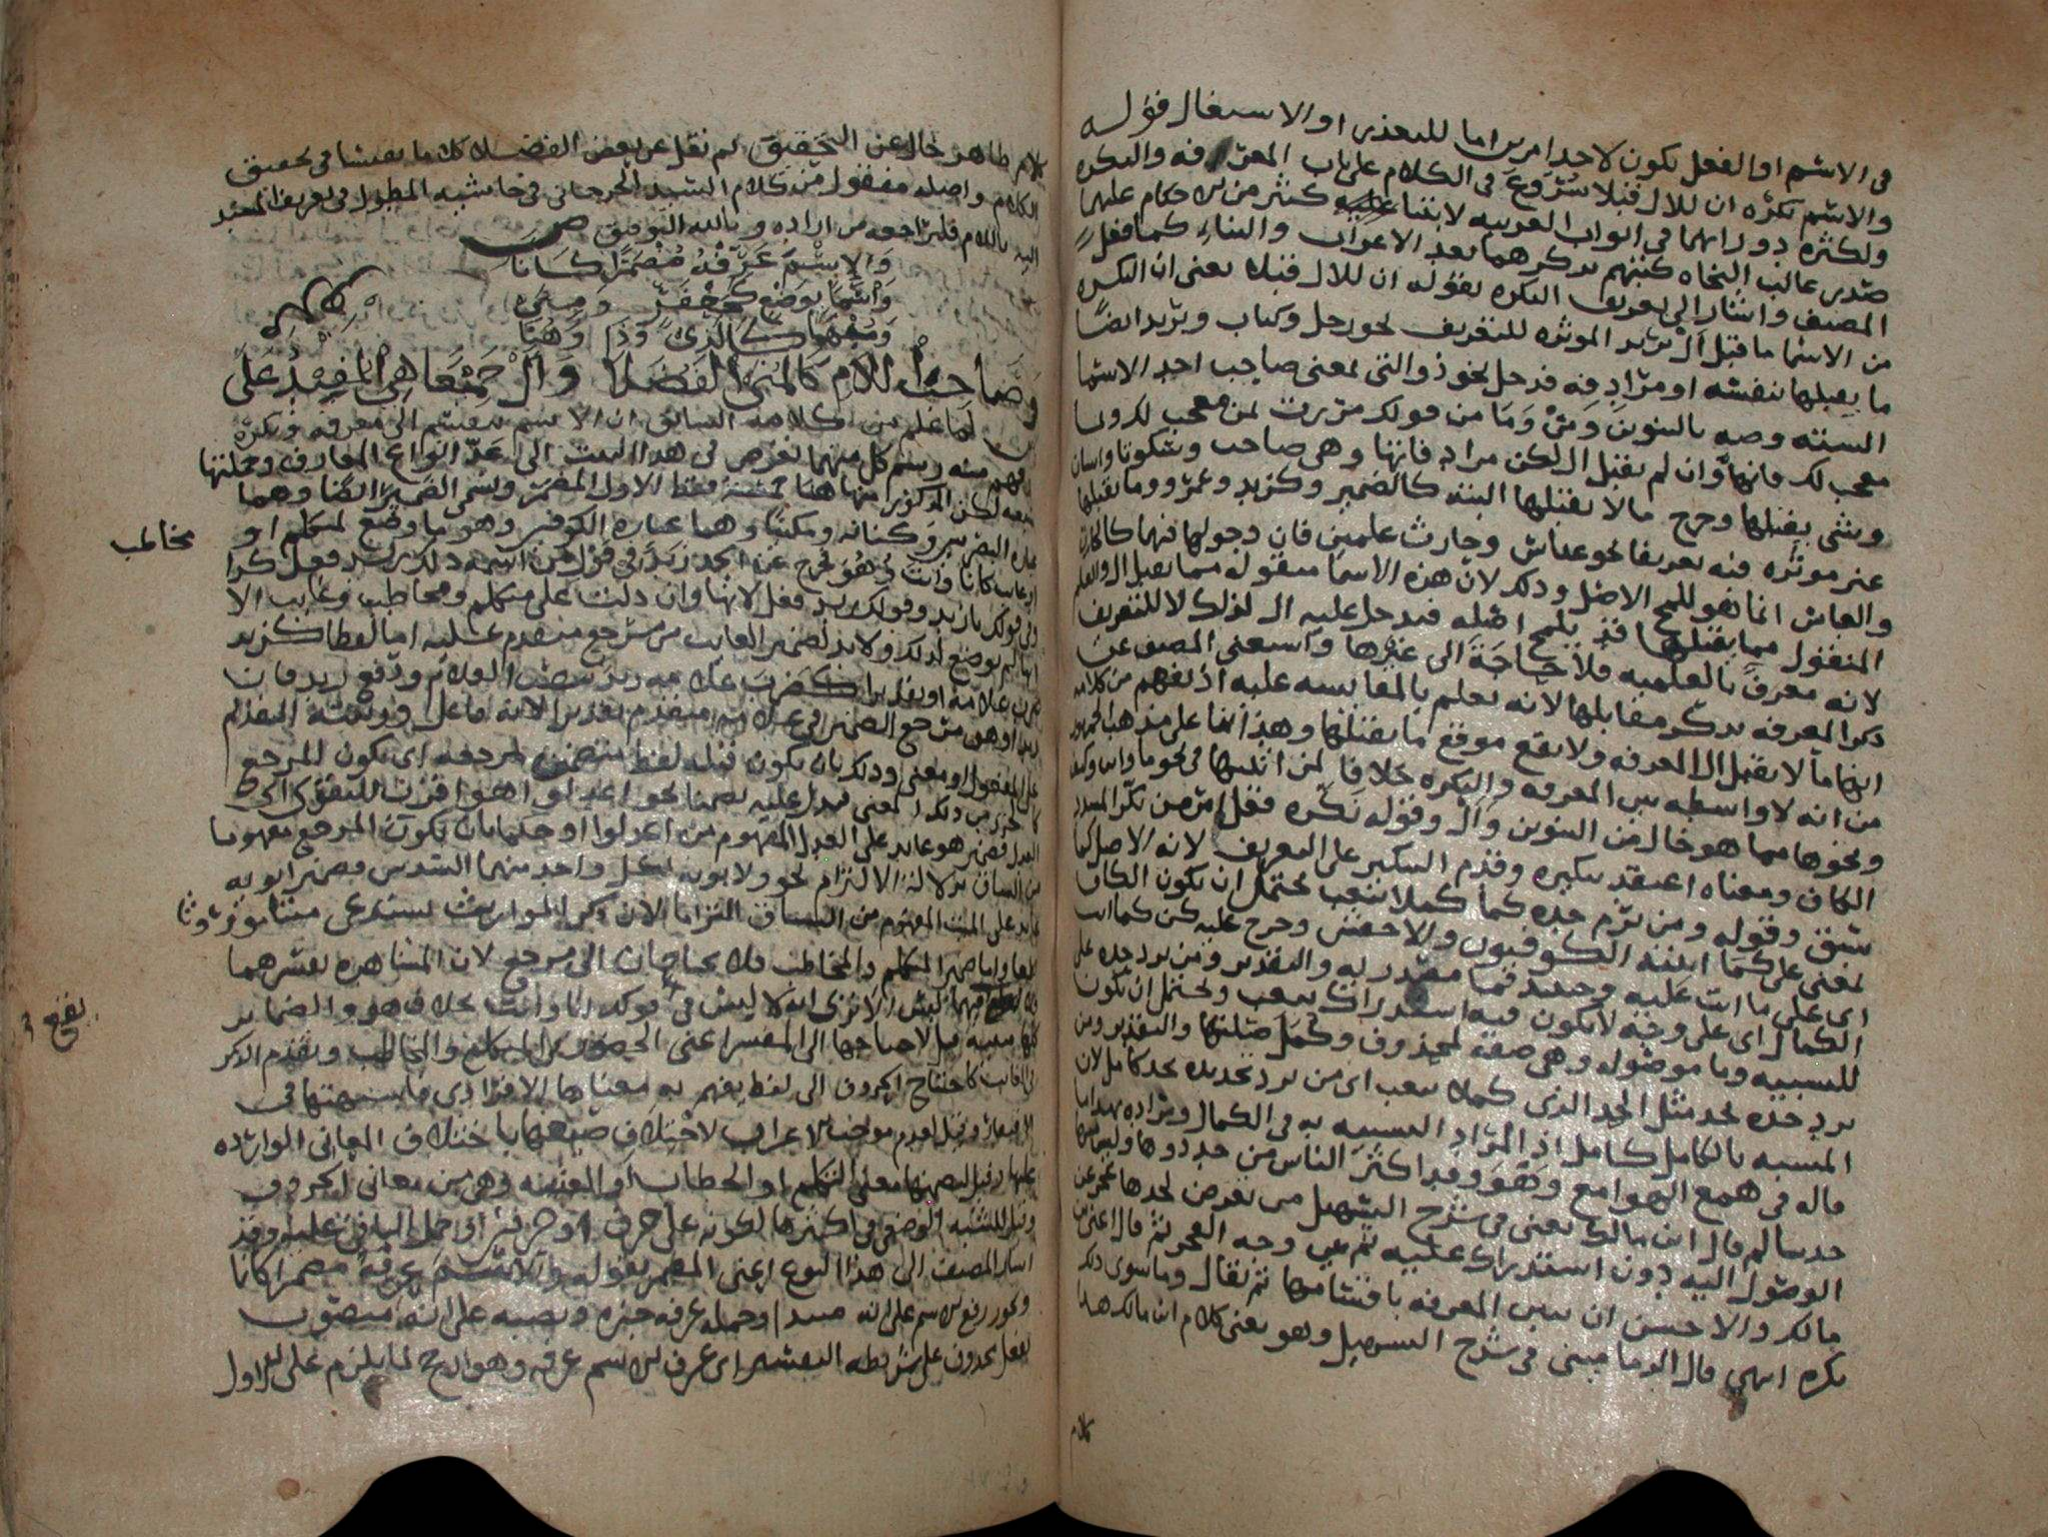 فى الاسم او الفعل يكون لاحد امرين اما للتعذر او الاستثقال قوله
والاسم نكره ان لال قبلا شروع فى الكلام على باب المعرفه والنكره
ولكثره دورانهما فى ابواب العربيه لابتناء كثير من الاحكام عليهما
صدر غالب النحاه كتبهم بذكرهما بعد الاعراب والبناء كما فعل
المصنف واشار الى تعريف النكره بقوله ان لال قبلا يعنى ان النكره
من الاسما ما قبل ال المؤثره للتعريف نحو رجل وكتاب ويريد ايضا
ما يقبلها بنفسه او مرادفه فدخل نحو ذو التى بمعنى صاحب احد الاسما
السته وصه بالتنوين ومن وما من قولك مررت بمن معجب لك وبما
معجب لك فانها وان لم تقبل ال لكن مرادفاتها وهى صاحب وسكوتا وانسان
وشى يقبلها وخرج مالا يقبلها البته كالضمير وكزيد وعمرو وما يقبلها
غير موثره فيه تعريفا نحو عباس وحارث علمين فان دخولها فيهما كالحارث
والعباس انما هو للمح الاصل وذلك لان هذه الاسما منقوله مما يقبل ال والعلم
المنقول مما يقبلها قد يلمح اصله فيدخل عليه ال لذلك لا للتعريف
لانه معرف بالعلميه فلا حاجة الى غيرها واستغنى المصنف عن
ذكر المعرفه بذكر مقابلها لانه يعلم بالمقايسه عليه اذ يفهم من كلامه
انها ما لا يقبل ال المعرفه ولا يقع موقع ما يقبلها وهذا بنا على مذهب الجمهور
من انه لا واسطه بين المعرفه والنكره خلافا لمن اثبتها فى نحو ما واين وكيف
ونحوها مما هو خال من التنوين وال وقوله نكره فعل امر من نكر المشدد
الكاف ومعناه اعتقد تنكيره وقدم التنكير على التعريف لانه الاصل كما
سبق وقوله ومن يرم حده كما كملا يتعب يحتمل ان تكون الكاف
بمعنى على كما اثبته الكوفيون والاخفش وخرج عليه كن كما انت
اى على ما انت عليه وحينئذ فما مصدريه والتقدير ومن يرد حده على
الكمال اى على وجه لا يكون فيه استدراك يتعب ويحتمل ان تكون
للتشبيه وما موصوله وهى صفه لمحذوف وكمل صلتها والتقدير ومن
يرد حده لحد مثل الحد الذى كملا يتعب اى من يرد تحديده بحد كامل لان
المشبه بالكامل كامل اذ المراد التشبيه به فى الكمال ومراده بهذا ما
قاله فى همع الهوامع وهو وقد اكثر الناس من حدودها وليس منها
حد سالم قال ابن مالك يعنى فى شرح التسهيل من تعرض لحدها عجز عن
الوصول اليه دون استدراك عليه ثم بين وجه العجز ثم قال اعنى ابن
مالك والاحسن ان تبين المعرفه باقسامها ثم يقال وما سوى ذلك
نكره انتهى قال الدمامينى فى شرح التسهيل وهو يعنى كلام ابن مالك هذا
كلام
كلام ظاهر خال عن التحقيق ثم نقل عن بعض الفضلاء كلاما نفيسا فى تحقيق
الكلام واصله منقول من كلام السيد الجرجانى فى حاشيه المطول فى تعريف المسند
اليه باللام فليراجعه من اراده وبالله التوفيق ص
والاسم عرفه مضمرا كانا
واسما بوضع كجعفر ومنى
ومبهما كالذى وذا وهنا
وصاحبا للام كالمنهى الفضلا وال جميعا هى المفيد على
لما علم من كلامه السابق ان الاسم ينقسم الى معرفه ونكره
وفهم منه رسم كل منهما تعرض فى هذا البيت الى عد انواع المعارف وجملتها
سبعه لكن المذكور منها هنا خمسه فقط الاول المضمر ويسمى الضمير ايضا وهما
عباره البصريين وكنايه ومكنيا وهما عباره الكوفيين وهو ما وضع لمتكلم او
مخاطب
او غايب كانا وانت وهو فخرج عن الحد زيد فى قول من اسمه ذلك زيد فعل كذا
وفى قولك يا زيد وقولك زيد فعل لانها وان دلت على متكلم ومخاطب وغايب الا
انها لم توضع لذلك ولا بد لضمير الغايب من مرجع متقدم عليه اما لفظا كزيد
ضرب غلامه او تقديرا كضرب غلامه زيد
على المفعول او معنى وذلك بان يكون قبله لفظ متضمن لمرجعه اى يكون المرجع
جزء من ذلك المعنى فيدل عليه تضمنا نحو اعدلوا هو اقرب للتقوى اى
العدل فضمير هو عايد على العدل المفهوم من اعدلوا او حكما بان يكون المرجع مفهوما
من السياق بدلالة الالتزام نحو ولابويه لكل واحد منهما السدس فضمير ابويه
عايد على الميت المفهوم من السياق التزاما لان ذكر المواريث يستدعى ميتا موروثا
واما ضمير المتكلم والمخاطب فلا يحتاجان الى مرجع لان المشاهده تفسرهما
فلا لبس الا ترى انه لا لبس فى قولك انا وانت بخلاف هو والضماير
يقع
كلها مبنيه قيل لاحتياجها الى المفسر اعنى الحضور فى المتكلم والمخاطب وتقدم الذكر
فى الغايب كاحتياج الحروف الى لفظ يفهم به معناها الافرادى فاشبهتها فى
الافتقار وقيل لعدم موجب الاعراب لاختلاف صيغها باختلاف المعانى الوارده
عليها وقيل لتضمنها معنى التكلم او الخطاب او الغيبه وهى من معانى الحروف
وقيل للشبه الوضعى فى اكثرها لكونه على حرف او حرفين وحمل الباقى عليه وقد
اشار المصنف الى هذا النوع اعنى المضمر بقوله والاسم عرفه مضمرا كانا
ويجوز رفع الاسم على انه مبتدا وجمله عرفه خبره ونصبه على انه منصوب
بفعل محذوف على شريطه التفسير اى عرف الاسم عرفه وهو ارجح لما يلزم على الاول